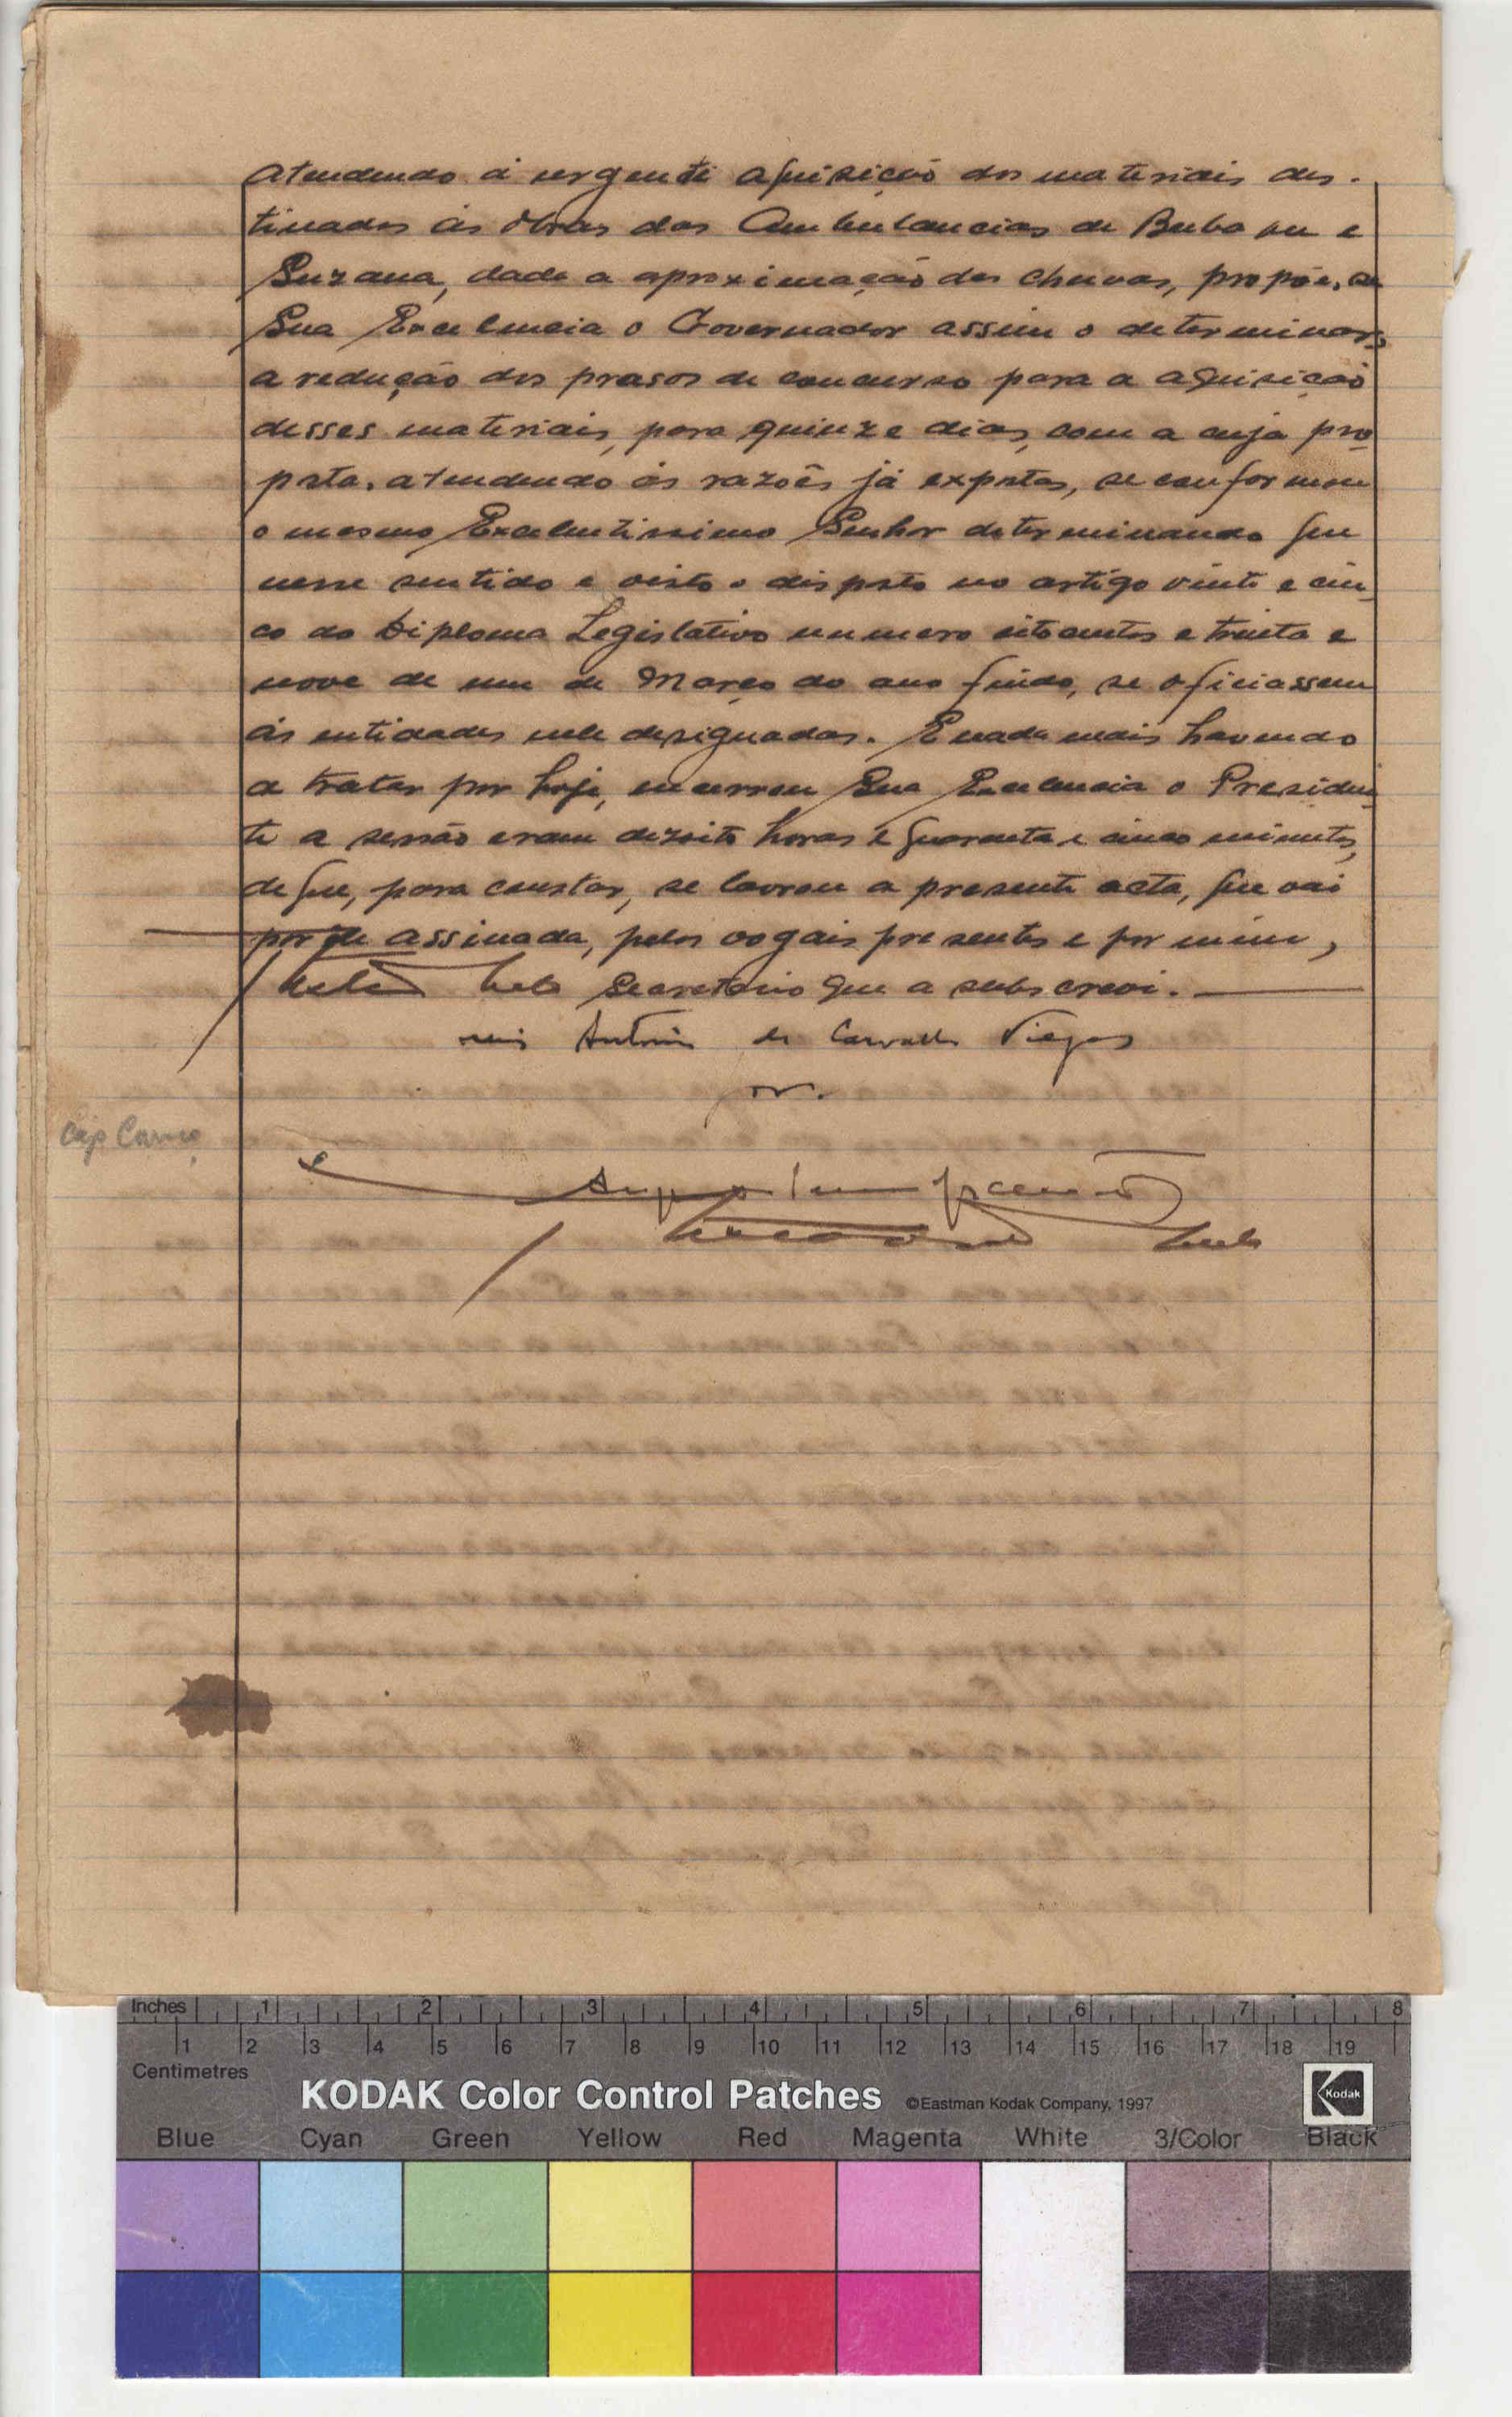 atendendo á urgente aquisição dos materiais des-
tinados ás obras das Ambulancias de Buba ou e
Suzana, dada a aproximação das chuvas, propõe, se
Sua Excelencia o Governador assim o determinar,
a redução dos prasos de concurso para a aquisição
desses materiais, para quinze dias, com a cuja pro
posta, atendendo ás razões já expostas, se conformou
o mesmo Excelentissimo Senhor determinando que
nesse sentido e visto o disposto no artigo vinte e cin
co do Diploma Legislativo numero oitocentos e trinta e
nove de um de Março do ano findo, se oficiassem
ás entidades nele designadas. E nada mais havendo
a tratar por hoje, encerrou Sua Excelencia o Presiden
te a sessão eram dezoito horas e quarenta e cinco minutos,
de que, para constar, se lavrou a presente acta, que vai
por ele assinada, pelos vogais presentes e por mim,
Secretario que a subscrevi.
Luis Antonio de Carvalho Viegas
Cap Carmo